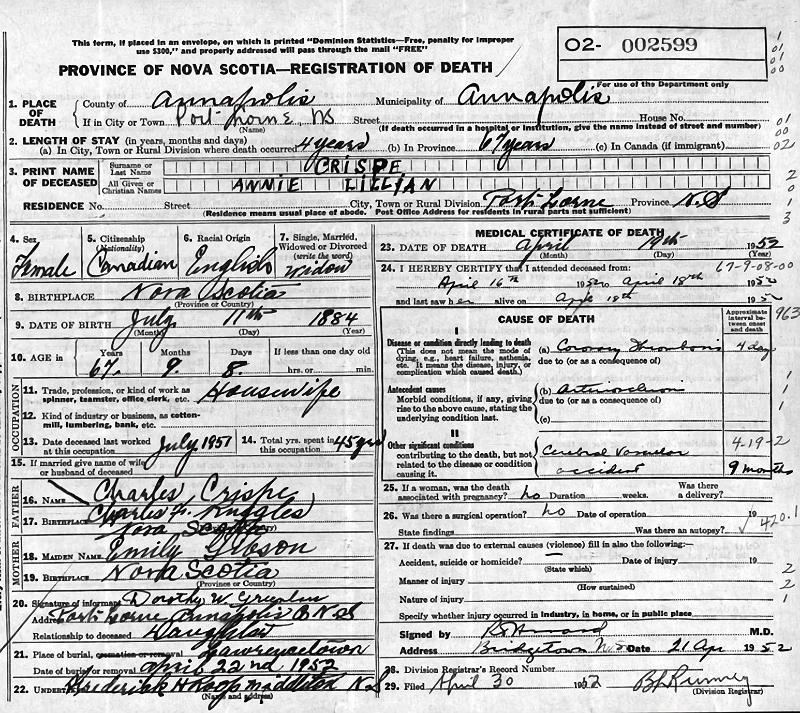 This form, if placed in an envelope, on which is printed "Dominion Statistics—Free, penalty for improper
use $300," and properly addressed will pass through the mail "FREE"
O2- 002599
PROVINCE OF NOVA SCOTIA—REGISTRATION OF DEATH
For use of the Department only
1. PLACE OF DEATH County of Annapolis Municipality of Annapolis
If in City or Town Port Lorne, NS Street House No.
(Name) (If death occurred in a hospital or institution, give the name instead of street and number)
2. LENGTH OF STAY (in years, months and days)
(a) In City, Town or Rural Division where death occurred 4 years (b) In Province 67 years (c) In Canada (if immigrant)
3. PRINT NAME OF DECEASED Surname or Last Name CRISPE
All Given or Christian Names ANNIE LILLIAN
RESIDENCE No. Street City, Town or Rural Division Port Lorne Province N.S
(Residence means usual place of abode. Post Office Address for residents in rural parts not sufficient)
4. Sex Female
5. Citizenship (Nationality) Canadian
6. Racial Origin English
7. Single, Married, Widowed or Divorced (write the word) Widow
8. BIRTHPLACE Nova Scotia
(Province or Country)
9. DATE OF BIRTH July 11th 1884
(Month) (Day) (Year)
10. AGE in Years 67 Months 9 Days 8 If less than one day hrs. or min.
OCCUPATION
11. Trade, profession, or kind of work as spinner, teamster, office clerk, etc. Housewife
12. Kind of industry or business, as cotton-mill, lumbering, bank, etc.
13. Date deceased last worked at this occupation July 1951 14. Total yrs. spent in this occupation 45 yrs
15. If married give name of wife or husband of deceased
Charles Crispe
FATHER
16. Name Charles Ruggles
17. Birthplace Nova Scotia
MOTHER
18. Maiden Name Emily Gibson
19. Birthplace Nova Scotia
(Province or Country)
20. Signature of informant Dorothy W
Address Port Lorne Annapolis NS
Relationship to deceased Daughter
21. Place of burial, cremation or removal Lawrencetown
Date of burial or removal April 22nd, 1952
22. UNDERTAKER Frederick H Roop Middleton N S
(Name and address)
MEDICAL CERTIFICATE OF DEATH
23. DATE OF DEATH April 19th 1952
(Month) (Day)
24. I HEREBY CERTIFY that I attended deceased from: 67-9-08-00
April 16th 1952 to April 18th 1952
and last saw her alive on Apr 18th 1952
CAUSE OF DEATH
Approximate interval between onset and death
I
Disease or condition directly leading to death
(This does not mean the mode of dying, e.g., heart failure, asthenia, etc. It means the disease, injury, or complication which caused death.)
(a) Coronary Thrombosis 4 day
due to (or as a consequence of)
Antecedent causes
Morbid conditions, if any, giving rise to the above cause, stating the underlying condition last.
(b)
due to (or as a consequence of)
(c)
II
Other significant conditions
contributing to the death, but not related to the disease or condition causing it.
Cerebral Vascular
accident
4-19-2
9 months
25. If a woman, was the death associated with pregnancy? no Duration weeks. Was there a delivery?
26. Was there a surgical operation? no Date of operation 19
State findings Was there an autopsy? 420.1
27. If death was due to external causes (violence) fill in also the following:—
Accident, suicide or homicide? Date of injury 19
(State which)
Manner of injury
(How sustained)
Nature of injury
Specify whether injury occurred in industry, in home, or in public place
Signed by M.D.
Address Bridgetown N.S. Date 21 Apr 1952
28. Division Registrar's Record Number
29. Filed April 30 1952
(Division Registrar)
963